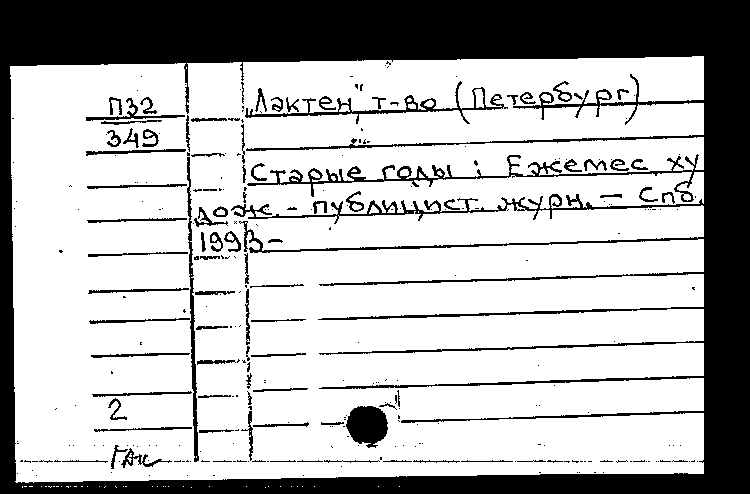 П32
349
„Лактен“, т-во (Петербург)
Старые годы : Ежемес. ху
дож. - публицист. журн. — Спб.
1993 -
2